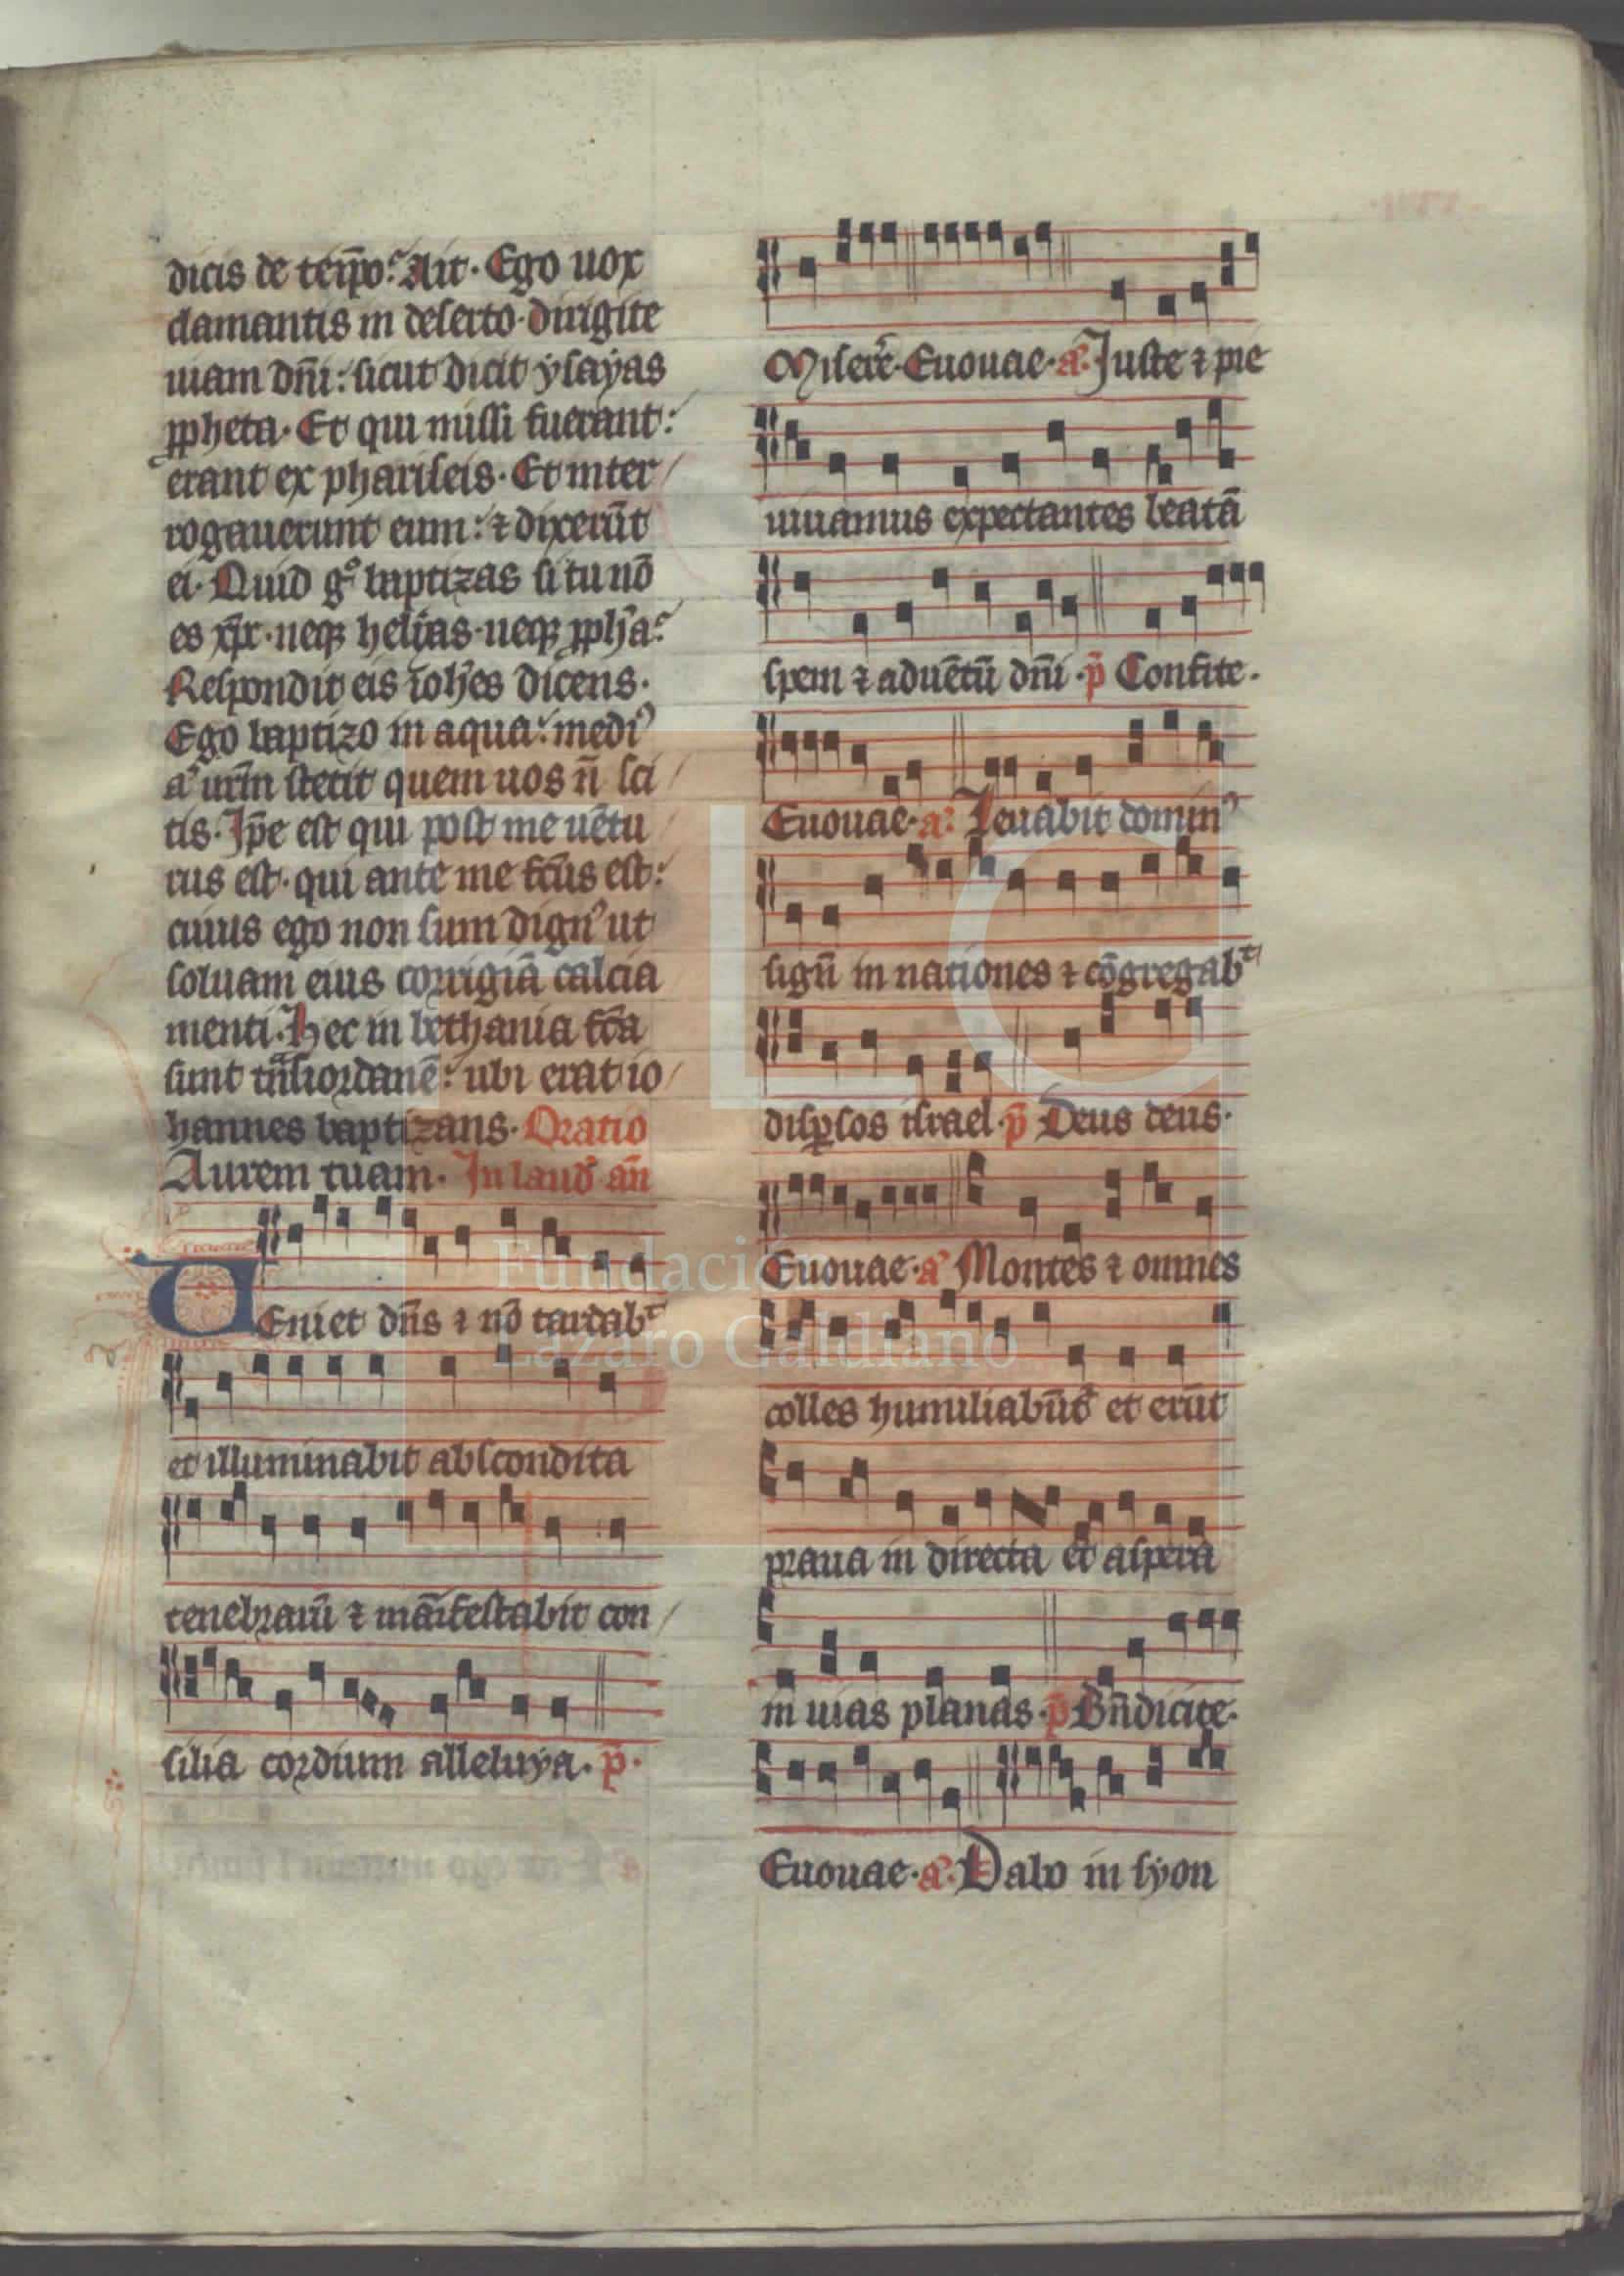 dicis de teip̄o? Ait. Ego uox
clamantis in deserto. dirigite
uiam dñi: sicut dicit ysayas
ppheta. Et qui missi fuerant:
erant ex phariseis. Et inter
rogauerunt eum: ⁊ dixerūt
ei. Quid gͦ baptizas si tu nō
es xp̄c. neqꝫ helyas. neqꝫ pph̄a?
Respondit eis ioh̄es dicens.
Ego baptizo in aqua: mediꝰ
aͭ urm̄ stetit quem uos n̄ sci
tis. Ip̄e est qui post me uētu
rus est. qui ante me fc̄us est:
cuius ego non sum dignꝰ ut
soluam eius corrigiā calcia
menti. Hec in bethania fc̄a
sunt tn̄siordanē: ubi erat io
hannes baptizans. Oratio
Aurem tuam. In laud̄ an̄
UEniet dn̄s ⁊ nō tardabͭ
et illuminabit abscondita
tenebrarū ⁊ māifestabit con
silia cordium alleluya. p̄.
Misere̅. Euouae. a. Juste ⁊ pie
uiuamus expectantes beatā
spem ⁊ aduētū dn̄i. p̄ Confite.
Euouae. a. Leuabit dominꝰ
signū in nationes ⁊ cōgregabͭ
disꝑsos israel. p̄ Deus deus.
Euouae. a Montes ⁊ omnes
colles humiliabūt̄ et erūt
praua in directa et aspera
in uias planas. p̄ Bn̄dicite.
Euouae. a. Dabo in syon
Fundación
Lázaro Galdiano